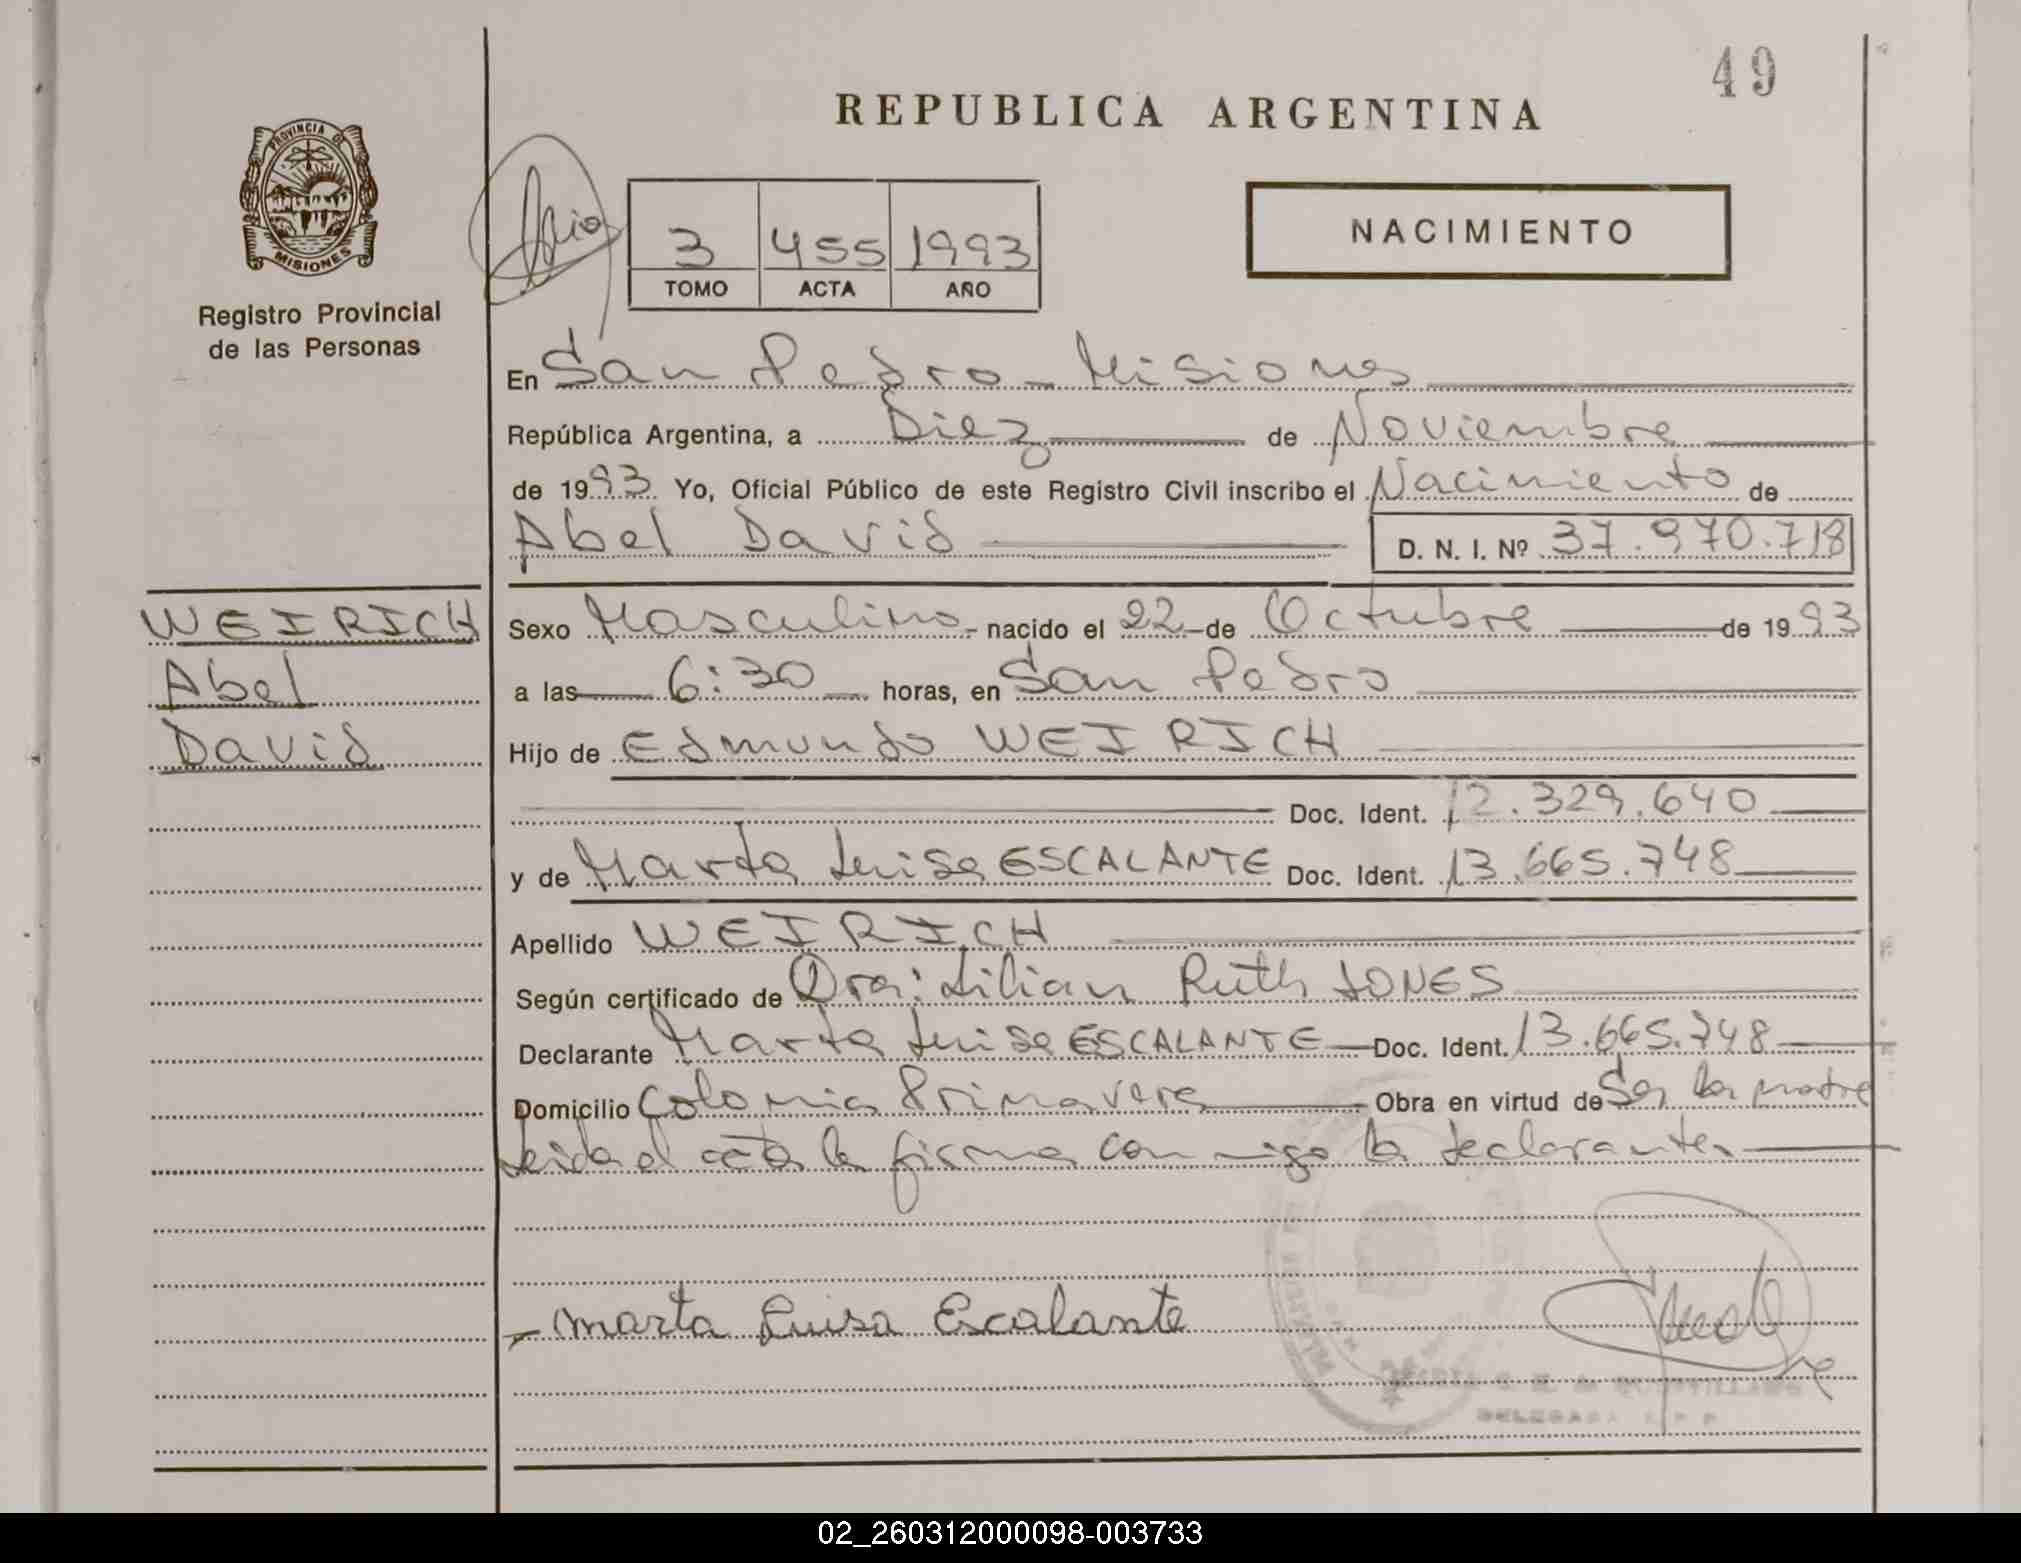 49
REPUBLICA ARGENTINA
PROVINCIA DE
MISIONES
Registro Provincial
de las Personas
3 455 1993
TOMO ACTA AÑO
NACIMIENTO
En San Pedro - Misiones
República Argentina, a Diez de Noviembre
de 1993 Yo, Oficial Público de este Registro Civil inscribo el Nacimiento de
Abel David D. N. I. Nº 37.970.718
WEIRICH
Abel
David
Sexo Masculino - nacido el 22 de Octubre de 1993
a las 6:30 horas, en San Pedro
Hijo de Edmundo WEIRICH
Doc. Ident. 12.329.640
y de Marta Luisa ESCALANTE Doc. Ident. 13.665.748
Apellido WEIRICH
Según certificado de Dra: Lilian Ruth JONES
Declarante Marta Luisa ESCALANTE Doc. Ident. 13.665.748
Domicilio Colonia Primavera Obra en virtud de Ser la madre
Leida el acta la firma con migo la declarante
Marta Luisa Escalante
DELEGADA R.P.P.
02_260312000098-003733